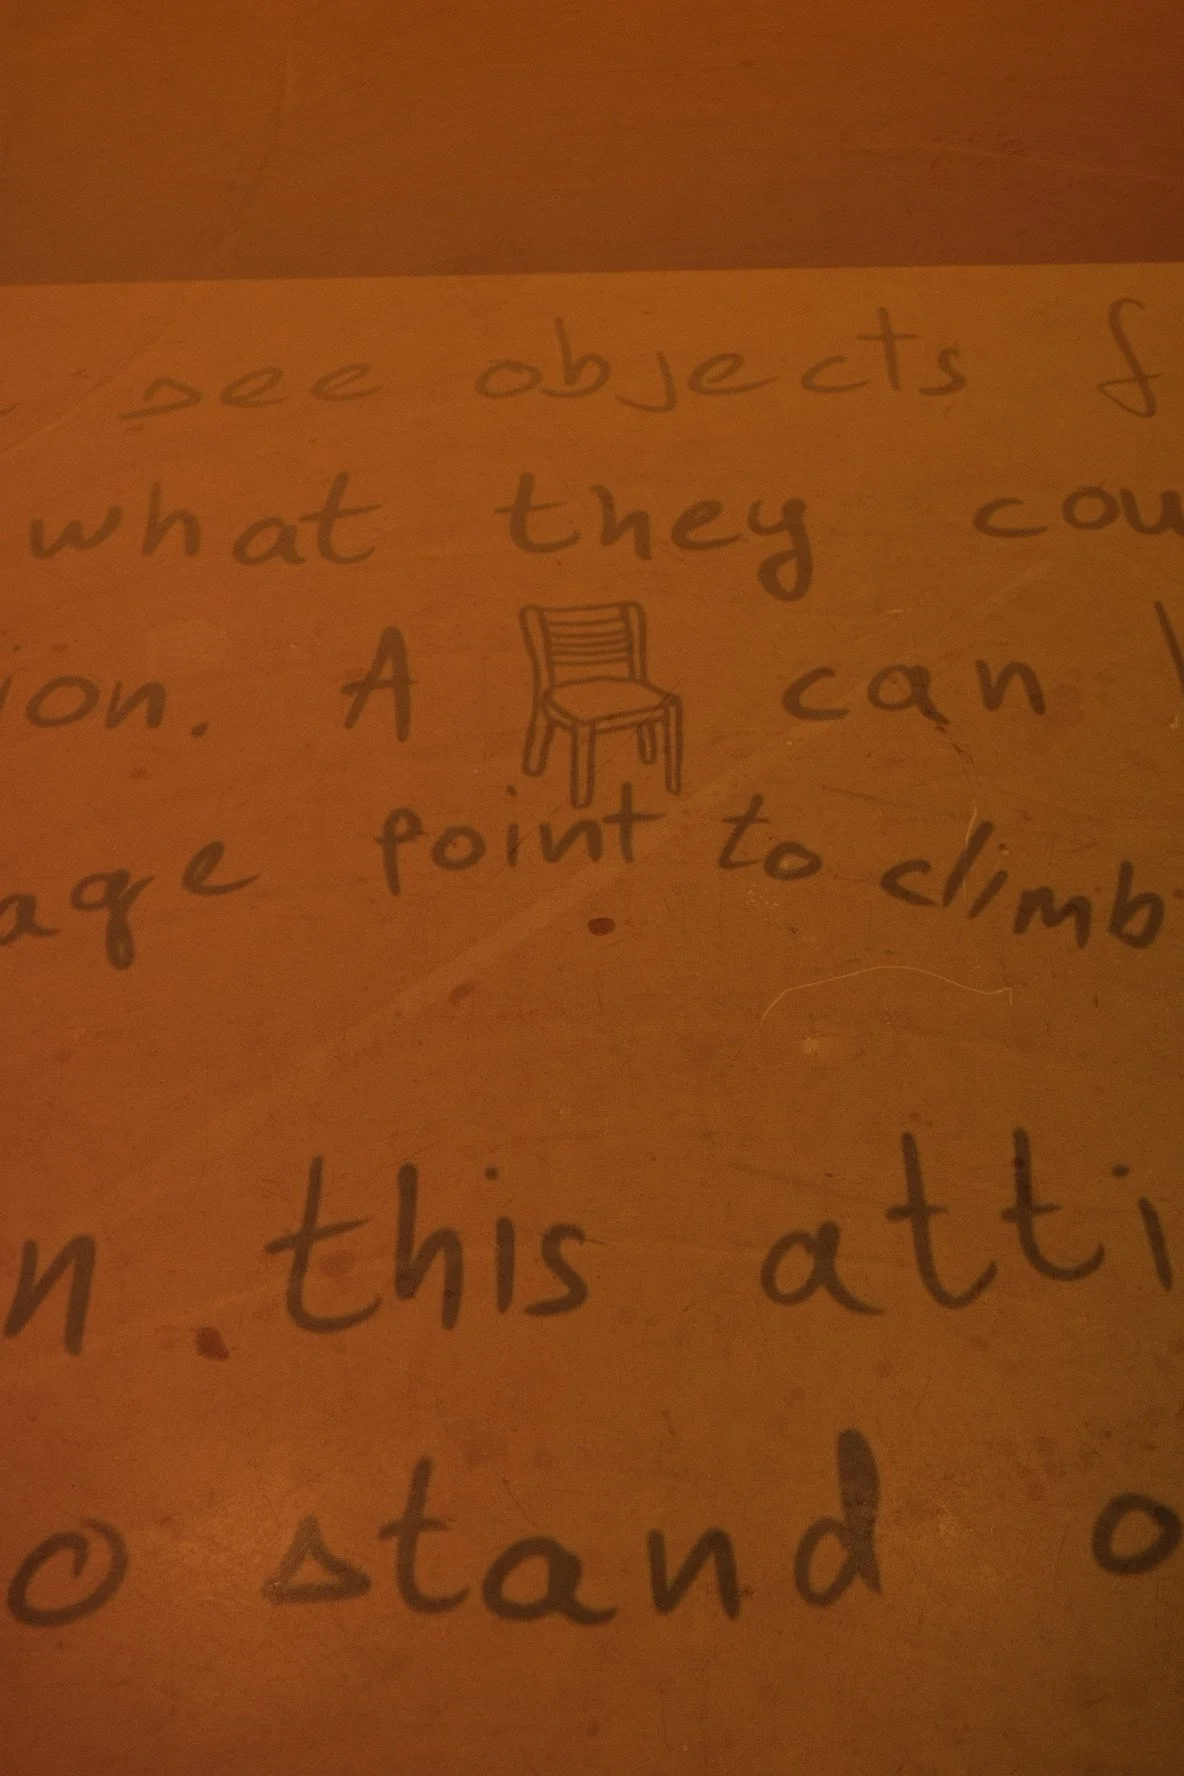 see objects f
what they cou
ion. A can
age point to climb
n this atti
o stand o